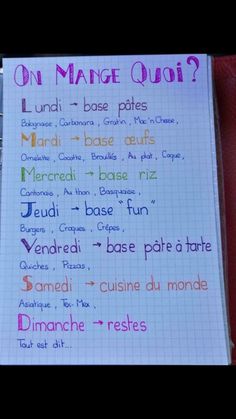 On Mange Quoi?
Lundi → base pâtes
Bolognaise, Carbonara, Gratin, Mac'n Cheese,
Mardi → base œufs
Omelette, Cocotte, Brouillés, Au plat, Coque,
Mercredi → base riz
Cantonais, Au thon, Basquaise,
Jeudi → base "fun"
Burgers, Croques, Crêpes,
Vendredi → base pâte à tarte
Quiches, Pizzas,
Samedi → cuisine du monde
Asiatique, Tex-Mex,
Dimanche → restes
Tout est dit...